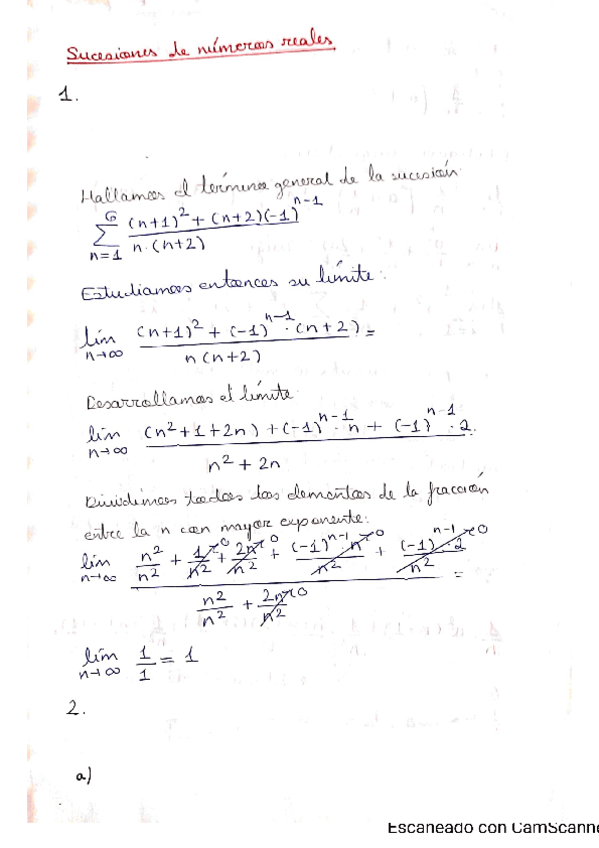 Sucesiones de números reales
1.
Hallamos el término general de la sucesión
∑_{n=1}^{6} ((n+1)² + (n+2)(-1)^{n-1}) / (n·(n+2))
Estudiamos entonces su límite:
lím_{n→∞} ((n+1)² + (-1)^{n-1}·(n+2)) / (n(n+2)) =
Desarrollamos el límite
lím_{n→∞} ((n²+1+2n) + (-1)^{n-1}·n + (-1)^{n-1}·2) / (n²+2n)
Dividimos todos los elementos de la fracción
entre la n con mayor exponente:
lím_{n→∞} (n²/n² + 1/n²→0 + 2n/n²→0 + (-1)^{n-1}·n/n²→0 + (-1)^{n-1}·2/n²→0) / (n²/n² + 2n/n²→0) =
lím_{n→∞} 1/1 = 1
2.
a)
Escaneado con CamScanne